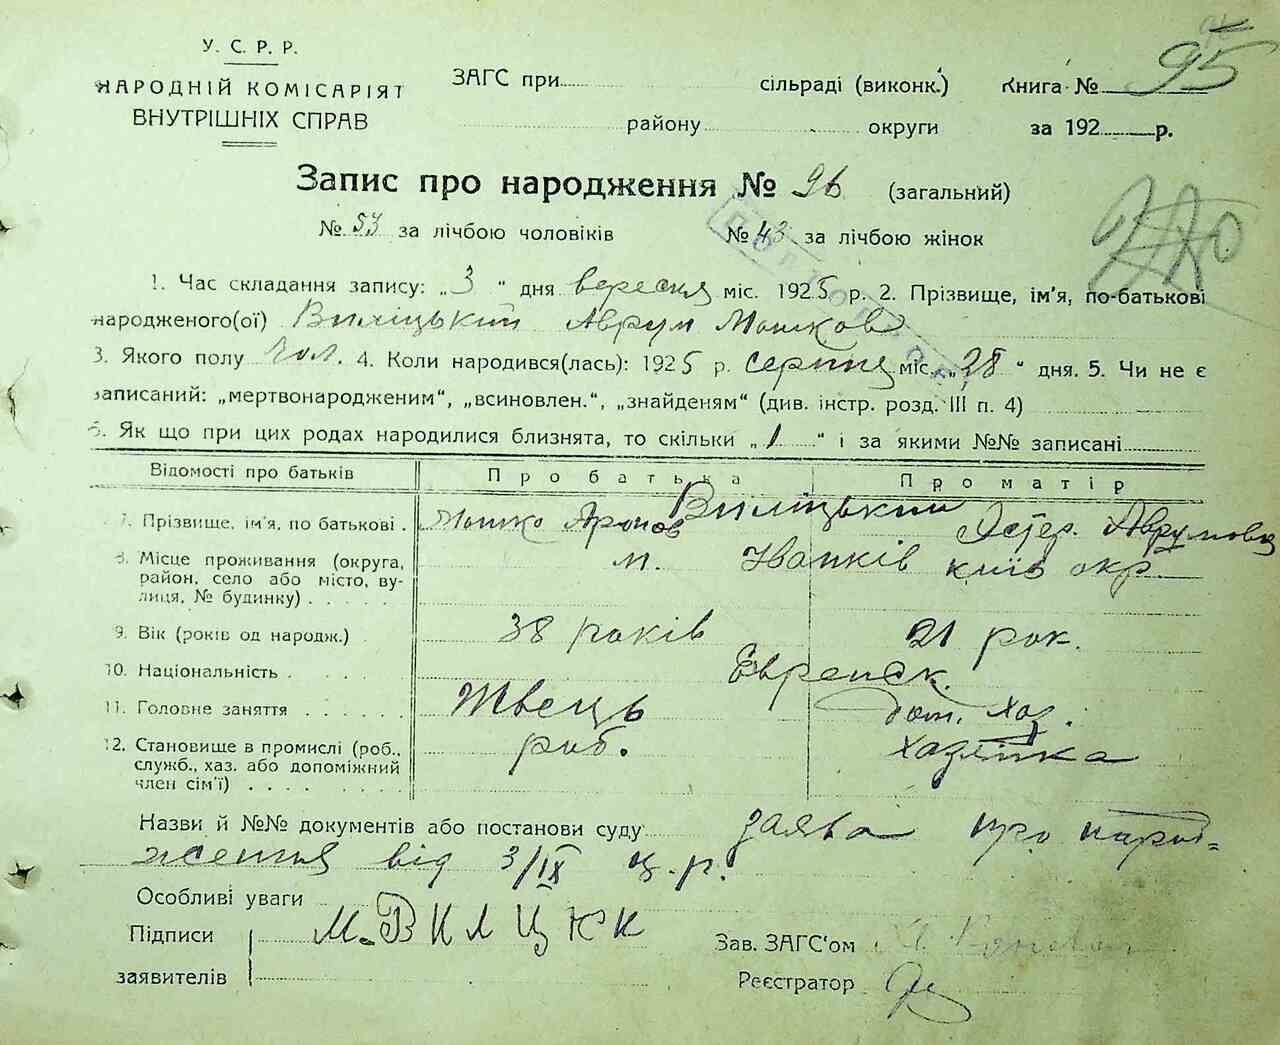 У. С. Р. Р.
НАРОДНІЙ КОМІСАРІЯТ
ВНУТРІШНІХ СПРАВ
ЗАГС при сільраді (виконк.) Книга № 95
району округи за 192 р.
Запис про народження № 96 (загальний)
№ 53 за лічбою чоловіків № 43 за лічбою жінок
1. Час складання запису: „3“ дня вересня міс. 1925 р. 2. Прізвище, ім'я, по-батькові
народженого(ої) Виліцький Аврум Мошков
3. Якого полу чол. 4. Коли народився(лась): 1925 р. серпня міс. „28“ дня. 5. Чи не є
записаний: „мертвонародженим“, „всиновлен.“, „знайденям“ (див. інстр. розд. III п. 4)
6. Як що при цих родах народилися близнята, то скільки „1“ і за якими №№ записані
Відомості про батьків Про батька Про матір
7. Прізвище, ім'я, по батькові . Мошко Аронов Виліцький Эстер. Аврумовa
8. Місце проживання (округа, район, село або місто, вулиця, № будинку) м. Іванків київ окр.
9. Вік (років од народж.) 38 років 21 рок.
10. Національність Еврейск.
11. Головне заняття Швець дом. хаз.
12. Становище в промислі (роб., служб., хаз. або допоміжний член сім'ї) роб. хазяйка
Назви й №№ документів або постанови суду заява про народ=
ження від 3/IX ц.р.
Особливі уваги
Підписи М. ВИЛЦКИ Зав. ЗАГС'ом
заявителів Реєстратор